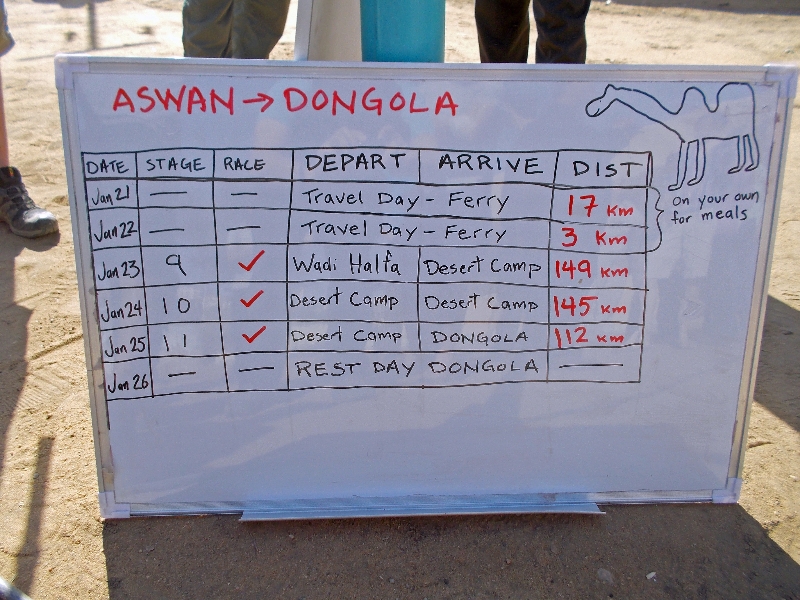 ASWAN → DONGOLA
DATE STAGE RACE DEPART ARRIVE DIST
Jan 21 — — Travel Day - Ferry 17 Km
Jan 22 — — Travel Day - Ferry 3 Km
on your own
for meals
Jan 23 9 ✓ Wadi Halfa Desert Camp 149 Km
Jan 24 10 ✓ Desert Camp Desert Camp 145 Km
Jan 25 11 ✓ Desert Camp DONGOLA 112 Km
Jan 26 — — REST DAY DONGOLA —